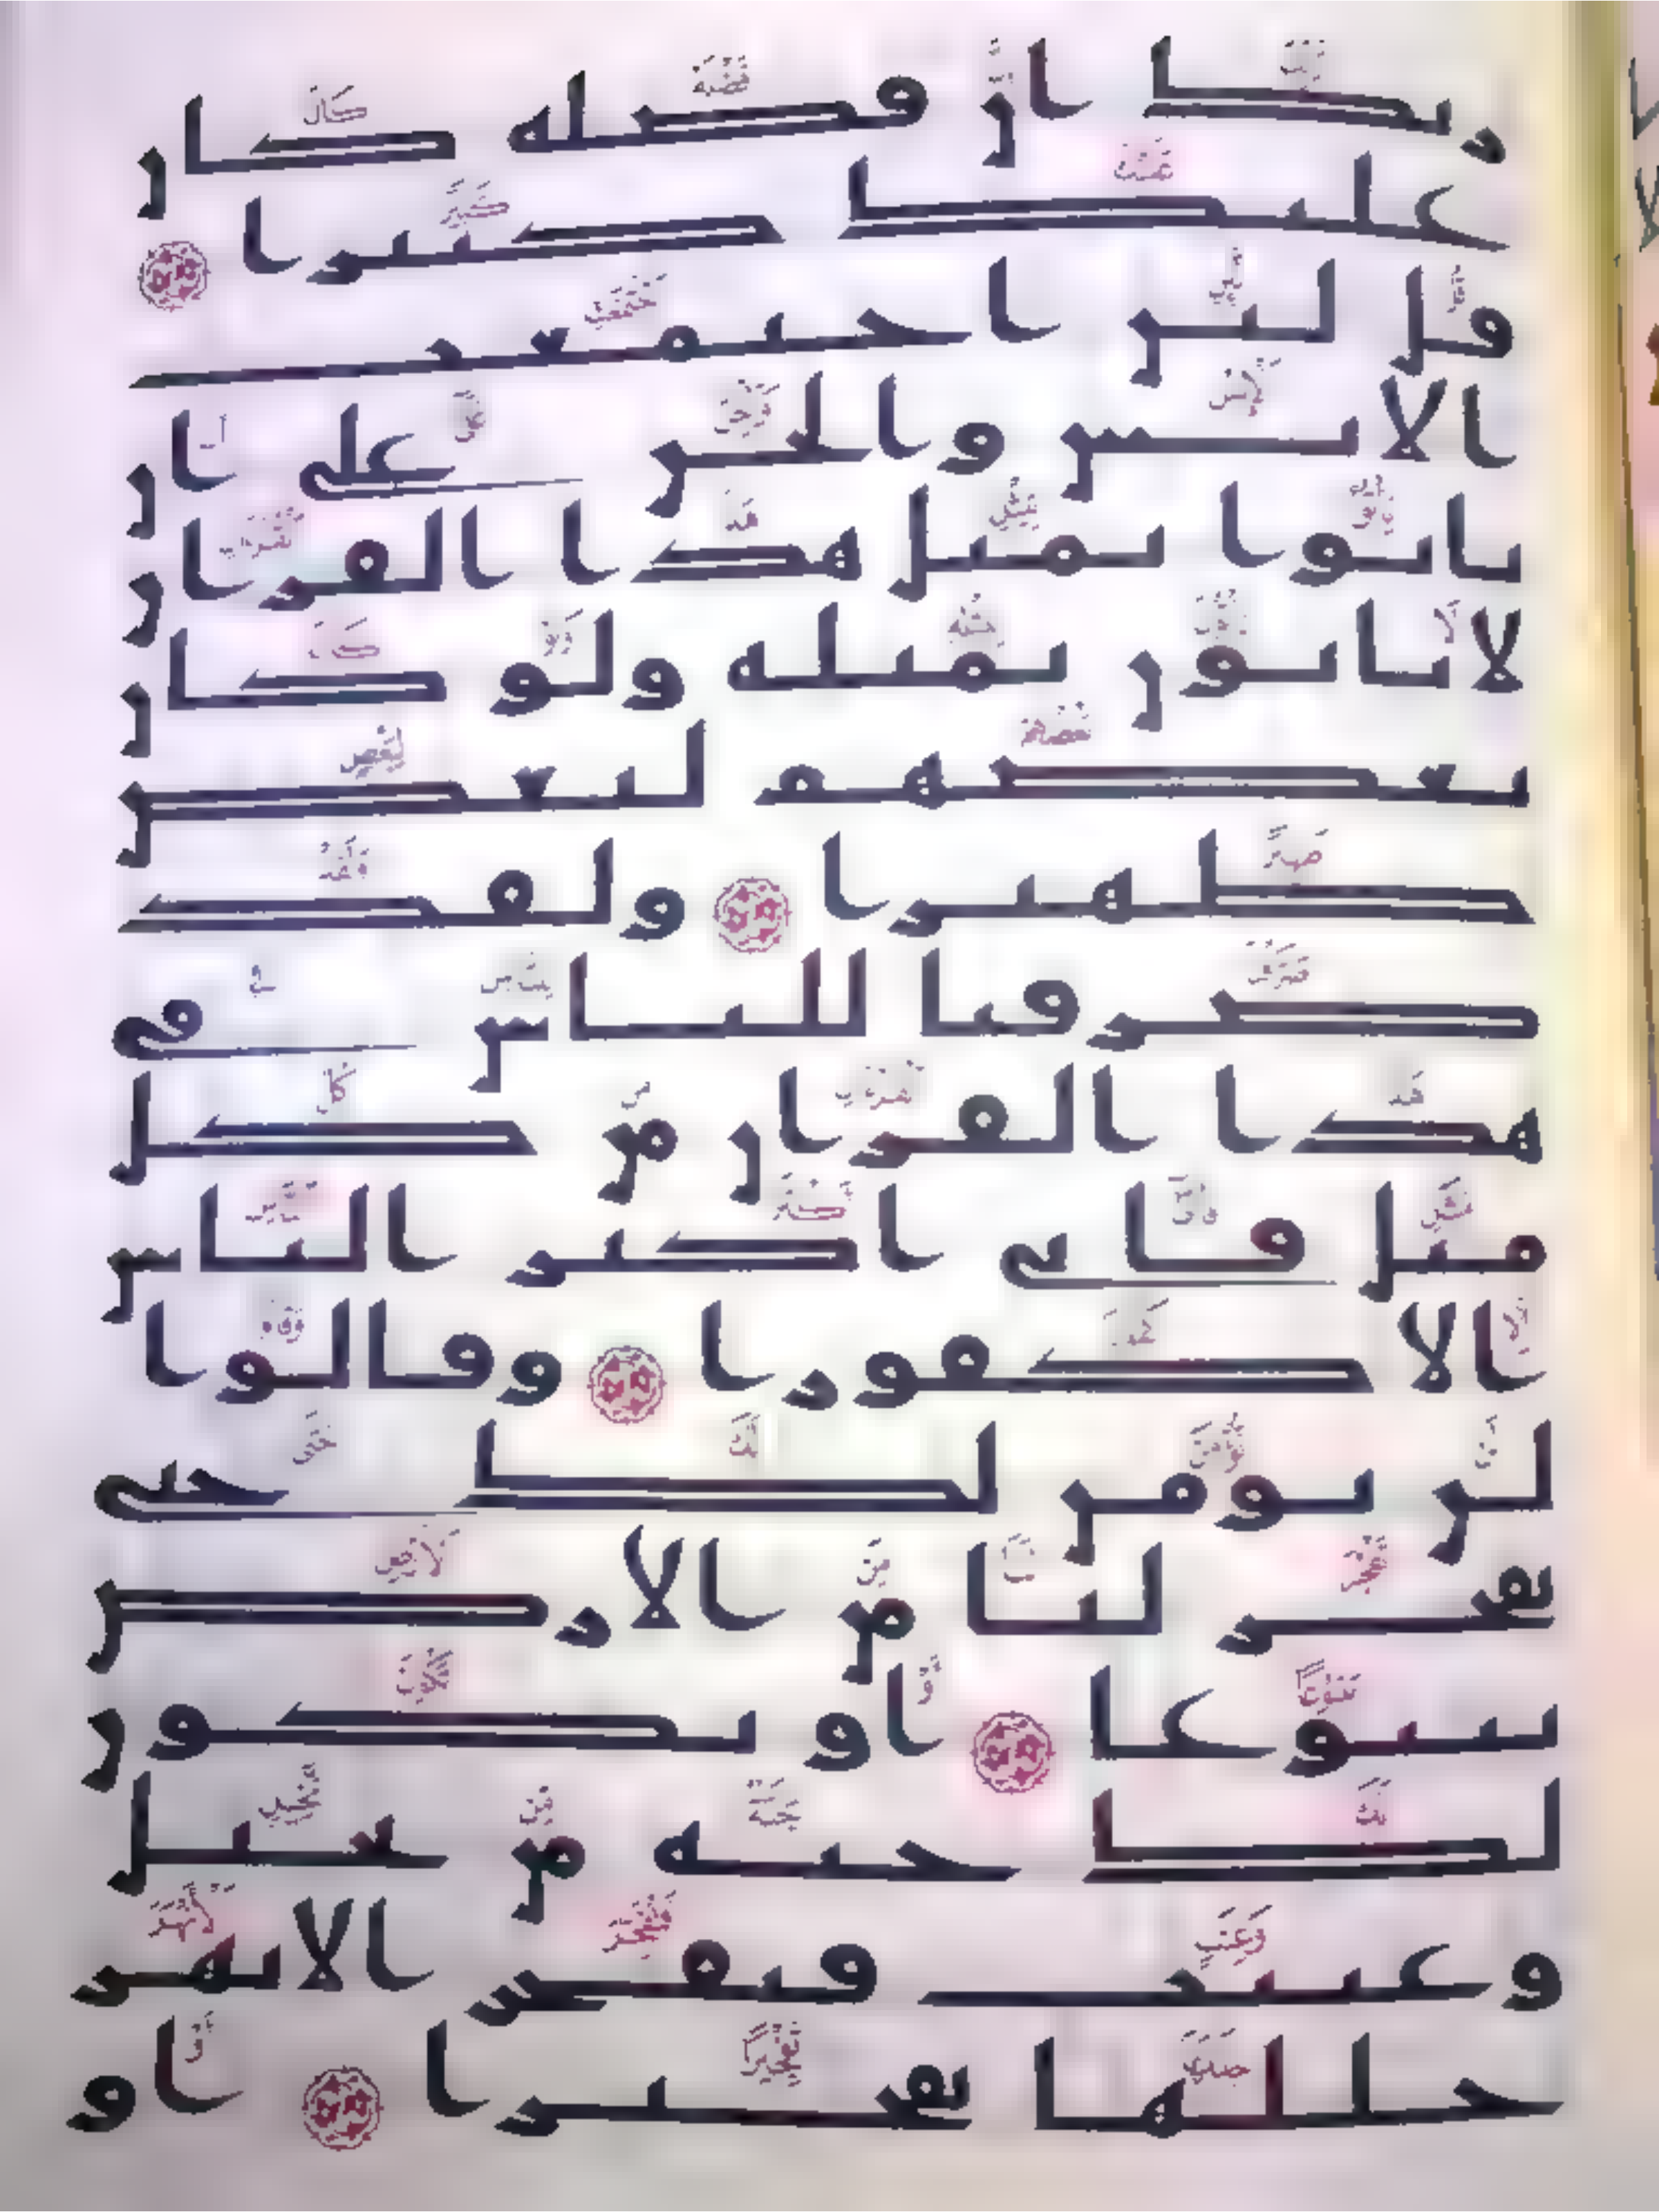 ربك ان فضله كان
عليك كبيرا
قل لين اجتمعت
الانس والجن على ان
ياتوا بمثل هذا القران
لا ياتون بمثله ولو كان
بعضهم لبعض
ظهيرا ولقد
صرفنا للناس في
هذا القران من كل
مثل فابى اكثر الناس
الا كفورا وقالوا
لن نومن لك حتى
تفجر لنا من الارض
ينبوعا او تكون
لك جنة من نخيل
وعنب فتفجر الانهر
خللها تفجيرا او